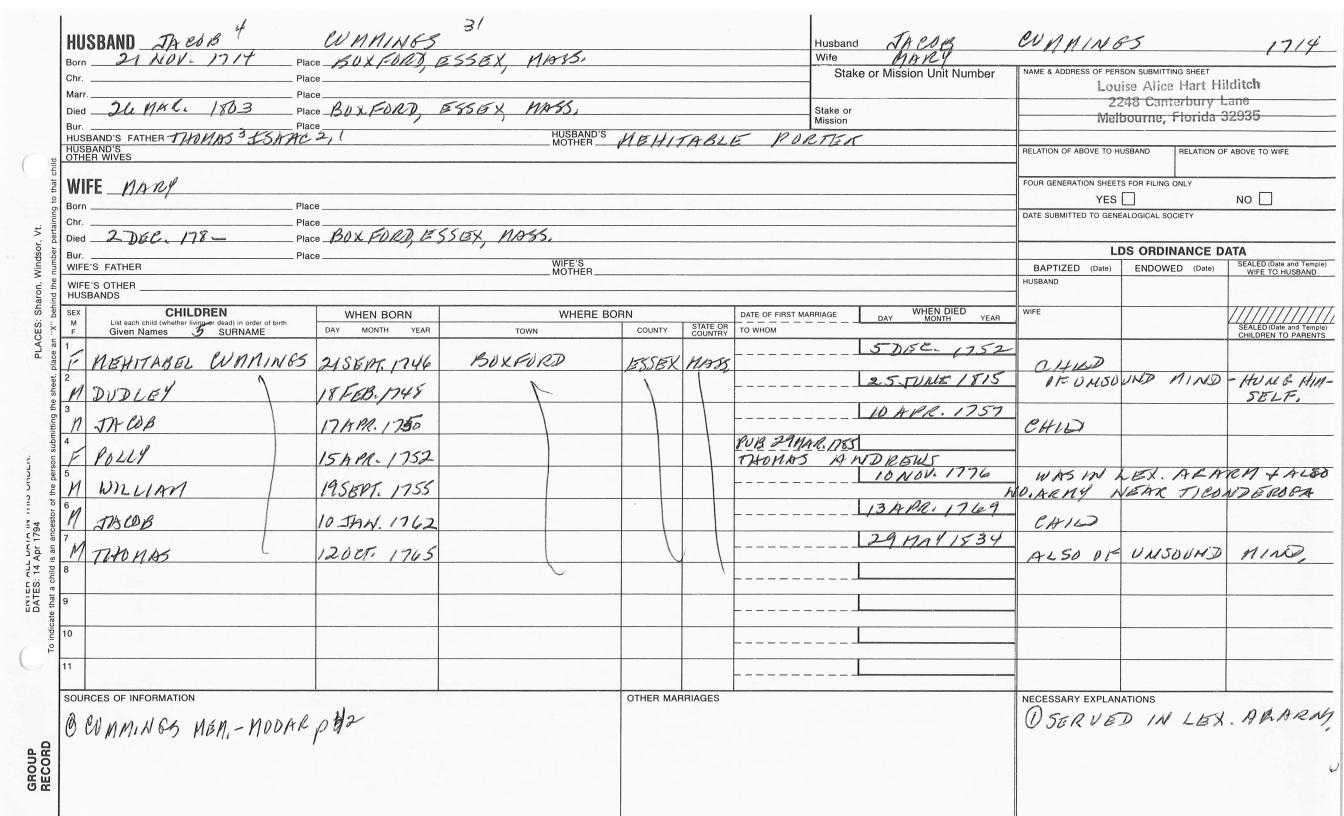 HUSBAND JACOB 4 CUMMINGS 31
Born 21 NOV. 1714 Place BOXFORD, ESSEX, MASS.
Chr. Place
Marr. Place
Died 26 MAR. 1803 Place BOXFORD, ESSEX, MASS.
Bur. Place
HUSBAND'S FATHER THOMAS 3 ISAAC 2, 1 HUSBAND'S MOTHER MEHITABLE PORTER
HUSBAND'S OTHER WIVES
Husband JACOB CUMMINGS 1714
Wife MARY
Stake or Mission Unit Number
Stake or Mission
NAME & ADDRESS OF PERSON SUBMITTING SHEET
Louise Alice Hart Hilditch
2248 Canterbury Lane
Melbourne, Florida 32935
RELATION OF ABOVE TO HUSBAND RELATION OF ABOVE TO WIFE
FOUR GENERATION SHEETS FOR FILING ONLY
YES NO
DATE SUBMITTED TO GENEALOGICAL SOCIETY
WIFE MARY
Born Place
Chr. Place
Died 2 DEC. 178– Place BOXFORD, ESSEX, MASS.
Bur. Place
WIFE'S FATHER WIFE'S MOTHER
WIFE'S OTHER HUSBANDS
LDS ORDINANCE DATA
BAPTIZED (Date) ENDOWED (Date) SEALED (Date and Temple) WIFE TO HUSBAND
HUSBAND
WIFE
SEALED (Date and Temple) CHILDREN TO PARENTS
SEX M F
CHILDREN
List each child (whether living or dead) in order of birth
Given Names SURNAME
WHEN BORN
DAY MONTH YEAR
WHERE BORN
TOWN COUNTY STATE OR COUNTRY
DATE OF FIRST MARRIAGE
TO WHOM
WHEN DIED
DAY MONTH YEAR
1 F MEHITABEL CUMMINGS 21 SEPT. 1746 BOXFORD ESSEX MASS. 5 DEC. 1752 CHILD
2 M DUDLEY 18 FEB. 1748 25 JUNE 1815 OF UNSOUND MIND - HUNG HIM-
SELF.
3 M JACOB 17 APR. 1750 10 APR. 1757 CHILD
4 F POLLY 15 APR. 1752 PUB 29 MAR. 1785
THOMAS ANDREWS
5 M WILLIAM 19 SEPT. 1755 10 NOV. 1776 WAS IN LEX. ALARM & ALSO
NO. ARMY NEAR TICONDEROGA
6 M JACOB 10 JAN. 1762 13 APR. 1769 CHILD
7 M THOMAS 12 OCT. 1765 29 MAY 1834 ALSO OF UNSOUND MIND.
8
9
10
11
SOURCES OF INFORMATION
CUMMINGS MEM. - MOOAR
OTHER MARRIAGES
NECESSARY EXPLANATIONS
① SERVED IN LEX. ALARM.
DATES: 14 Apr 1794 PLACES: Sharon, Windsor, Vt.
To indicate that a child is an ancestor of the person submitting the sheet, place an "X" behind the number pertaining to that child
GROUP RECORD